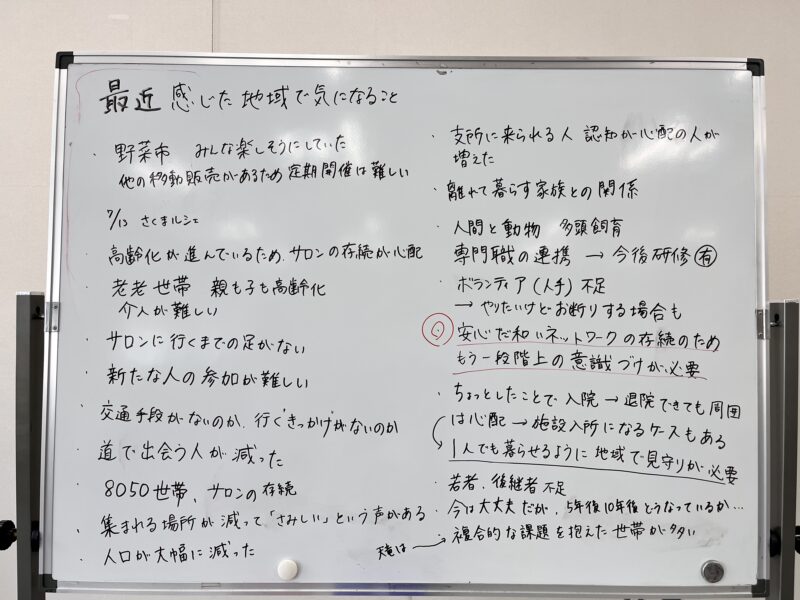 最近 感じた 地域で気になること
・野菜市 みんな楽しそうにしていた
他の移動販売があるため 定期開催は難しい
7/13 さくまルシェ
・高齢化が進んでいるため、サロンの存続が心配
・老老世帯 親も子も高齢化
介入が難しい
・サロンに行くまでの足がない
・新たな人の参加が難しい
・交通手段がないのか、行く"きっかけ"がないのか
・道で出会う人が減った
・8050世帯、サロンの存続
・集まれる場所が減って「さみしい」という声がある
・人口が大幅に減った
・支所に来られる人 認知が心配の人が
増えた
・離れて暮らす家族との関係
・人間と動物 多頭飼育
専門職の連携 → 今後研修㊒
・ボランティア(人手)不足
→ やりたいけどお断りする場合も
安心だ和いネットワークの存続のため
もう一段階上の意識づけが必要
・ちょっとしたことで入院 → 退院できても周囲
は心配 → 施設入所になるケースもある
1人でも暮らせるように地域で見守りが必要
・若者、後継者不足
・今は大丈夫だが、5年後10年後どうなっているか…
→ ・複合的な課題を抱えた世帯が多い